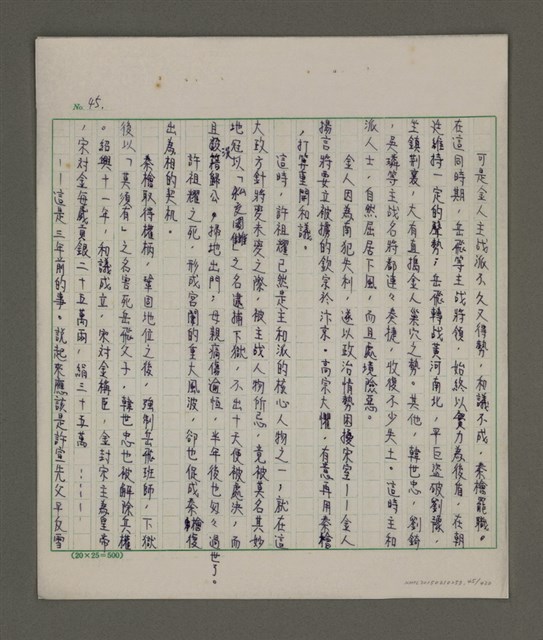 No. 45.
可是金人主战派不久又得勢，和議不成，秦檜罷職。
在這同時期，岳飛等主战將領，始終以實力為後盾，在朝
廷維持一定的聲勢；岳飛轉战黃河南北，平巨盗破劉豫，
坐鎮荊襄，大有直搗金人巢穴之勢。其他，韓世忠，劉錡
，吳璘等主战名將都連々奏捷，收復不少失土。這時主和
派人士，自然屈居下風，而且處境險惡。
金人因為南犯失利，遂以政治情勢困擾宋室——金人
揚言將要立被擄的欽宗於汴京。高宗大懼，有意再用秦檜
，打等重開和議。
這時，許祖耀已然是主和派的核心人物之一，就在這
大政方針將变未变之際，被主战人物所忌，竟被莫名其妙
地冠以「私交國讎」之名逮捕下獄，不出十天便被處决，而
且設籍歸公。掃地出門；母親病傷逾恆，半年後也匆々過世了。
許祖耀之死，形成宮闈的重大風波，卻也促成秦檜復
出為相的契机。
秦檜取得權柄，鞏固地位之後，強制岳飛班師，下獄
後以「莫須有」之名害死岳飛父子，韓世忠也被解除兵權
。紹興十一年，和議成立，宋对金稱臣，金封宋主為皇帝
，宋对金每歲貢銀二十五萬兩，絹二十五萬……
——這是三年前的事。說起來應該是許宣先父平反雪
(20×25=500)